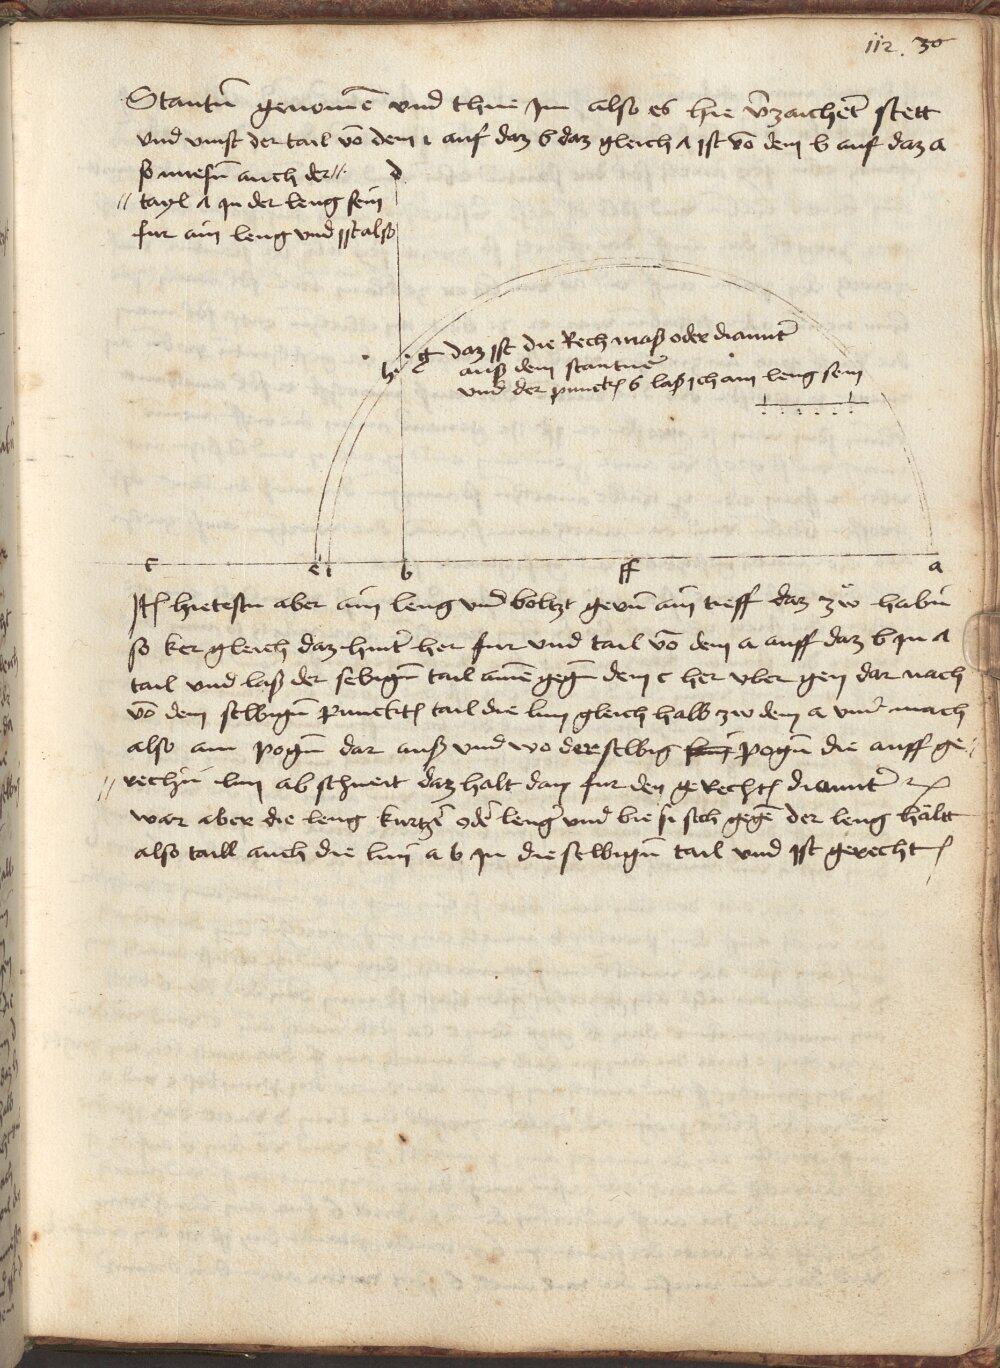 112. 30
Stantnẽ genomẽ und thue Im also es hie vˀzaichet stett
und vnst der tail võ dem 1 auf daz b daz gleich 1 ist võ dem b auf daz a
so muesñ auch der //
// tayl 1 in der leng sein
fur ain leng und ist also
d
g daz ist die Rech maß oder diamitˀ
h auß dem stantnẽ
und der punct 6 laß ich ain leng sein
c e i b ff a
Itẽ hietestu aber ain leng und boltzt geñ ain tieff daz zẅ habñ
so ker gleich daz hintˀ her fur und tail võ dem a auff daz b in 1
tail und laß der selbigñ tail ainẽ gegñ dem c her vber gen dar nach
võ dem selbigñ punckt tail die lini gleich halb zw dem a und mach
also ain pogñ dar auß und wo der selbig pogñ die auff ge //
// rechtñ lini ab schneit daz halt dan fur den gerecht diamitˀ
war aber die leng kurtzˀ odˀ lengˀ und bie si sich gegẽ der leng hältt
also taill auch die lini a b in die selbigñ tail und ist gerecht